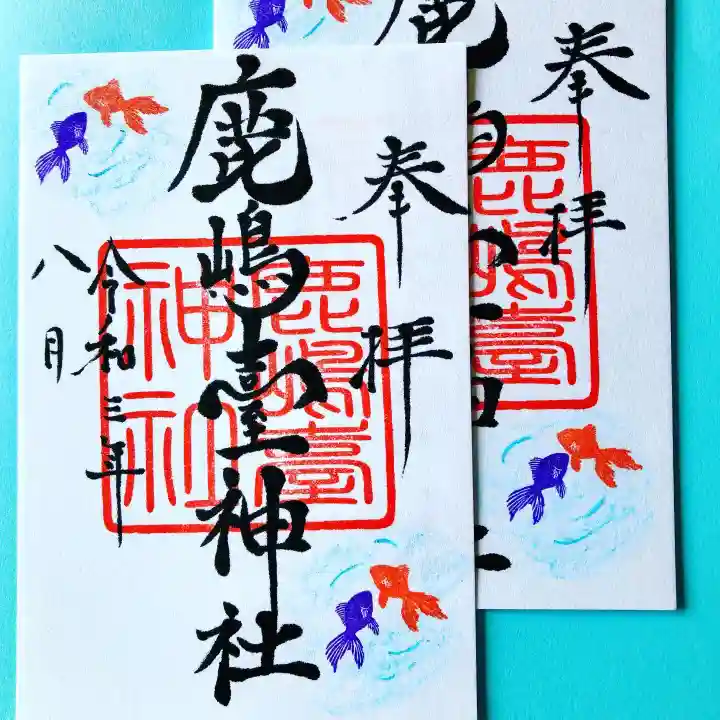 奉拝
鹿嶋臺神社
令和三年
八月
鹿嶋臺
神社
奉拝
鹿嶋臺